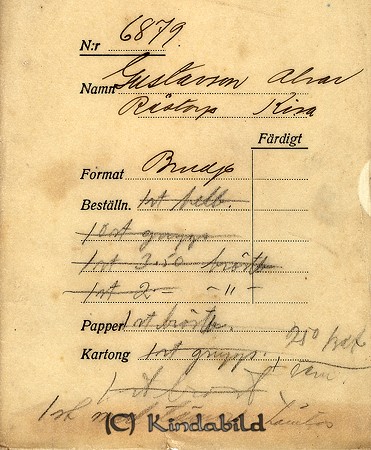 N:r 6879.
Namn Gustavson Alvar
Råstorp Kisa
Färdigt
Format Brudp
Beställn. 1 st hell.
1 st grupp
1 st 3.50 bröstb
1 st 2- -"-
Papper 1 st bröstb.
Kartong 1 st grupp.
250
ram.
1 st
1 st
(C) Kindabild